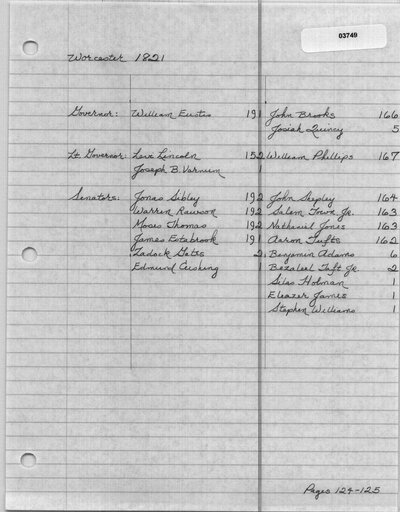 03749
Worcester 1821
Governor: William Eustis 191 John Brooks 166
Josiah Quincy 5
Lt. Governor: Levi Lincoln 152 William Phillips 167
Joseph B. Varnum 1
Senators: Jonas Sibley 192 John Shepley 164
Warren Rawson 192 Salem Town Jr. 163
Moses Thomas 192 Nathaniel Jones 163
James Estabrook 191 Aaron Tufts 162
Zadock Gates 2 Benjamin Adams 6
Edmund Cushing 1 Bezaleel Taft Jr. 2
Silas Holman 1
Eleazer James 1
Stephen Williams 1
Pages 124-125